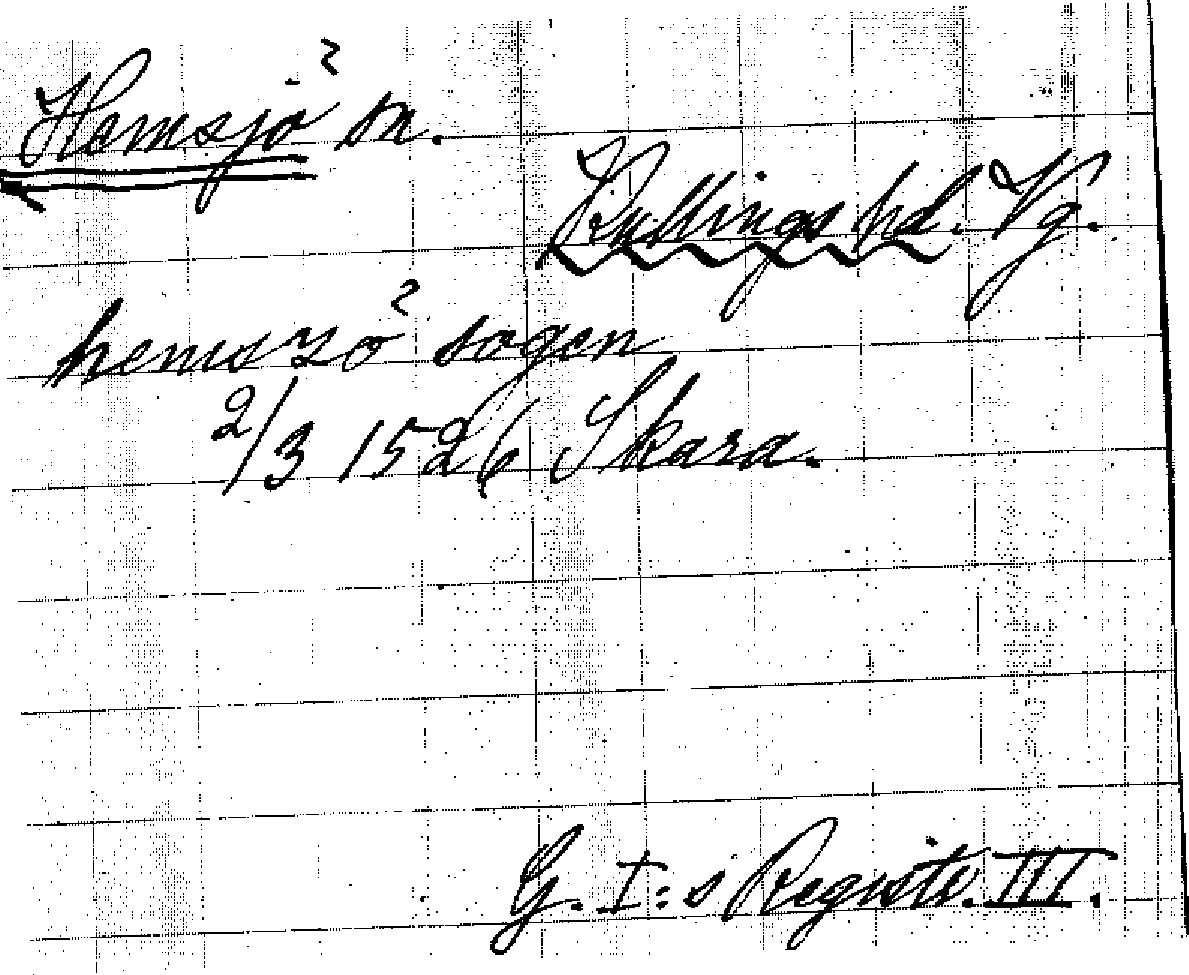 Hemsjö ² sn.
Kullings hd. Vg.
hemszö ² sogen
2/3 1526 Skara.
G. I:s Registr. III.